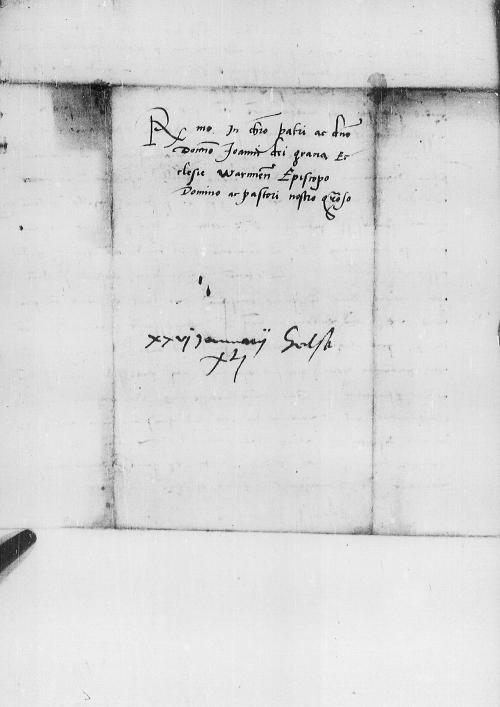 Rmo. In chro patri ac dno
Domno Joanni dei gratia Ec
clesie Warmien Episcopo
Domino ac pastori nostro
xxvj Januarij
xlj